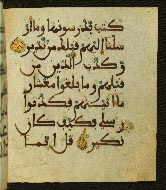 كتب يدرسونها وما أر
سلنا إليهم قبلك من نذير
وكذب الذين من
قبلهم وما بلغوا معشار
ما ءاتينهم فكذبوا
رسلي فكيف كان
نكير قل إنما